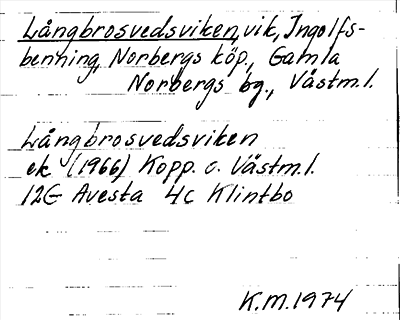 Långbrosvedsviken, vik, Ingolfs-
benning, Norbergs köp., Gamla
Norbergs bg., Västm.l.
Långbrosvedsviken
ek (1966) Kopp. o. Västm.l.
12G Avesta 4c Klintbo
K.M.1974